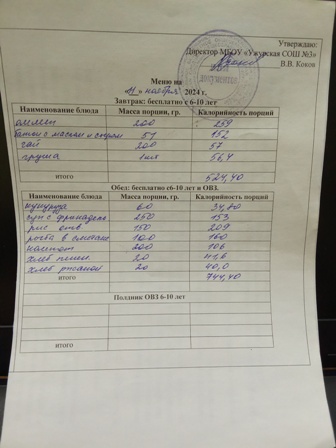 Утверждаю:
Директор МБОУ «Ужурская СОШ №3»
В.В. Коков
документов
Меню на
11 » ноября 2024 г.
Завтрак: бесплатно с 6-10 лет
Наименование блюда Масса порции, гр. Калорийность порций
омлет 200 259
батон с маслом и сыром 51 152
чай 200 57
груша 1шт 56,4
итого 524,40
Обед: бесплатно с6-10 лет и ОВЗ.
Наименование блюда Масса порции, гр. Калорийность порций
кукуруза 60 34,80
суп с фрикадел 250 153
рис отв 150 209
в сметане 100 160
компот 200 106
хлеб пшен 20 41,6
хлеб ржаной 20 40,0
итого 744,40
Полдник ОВЗ 6-10 лет
итого